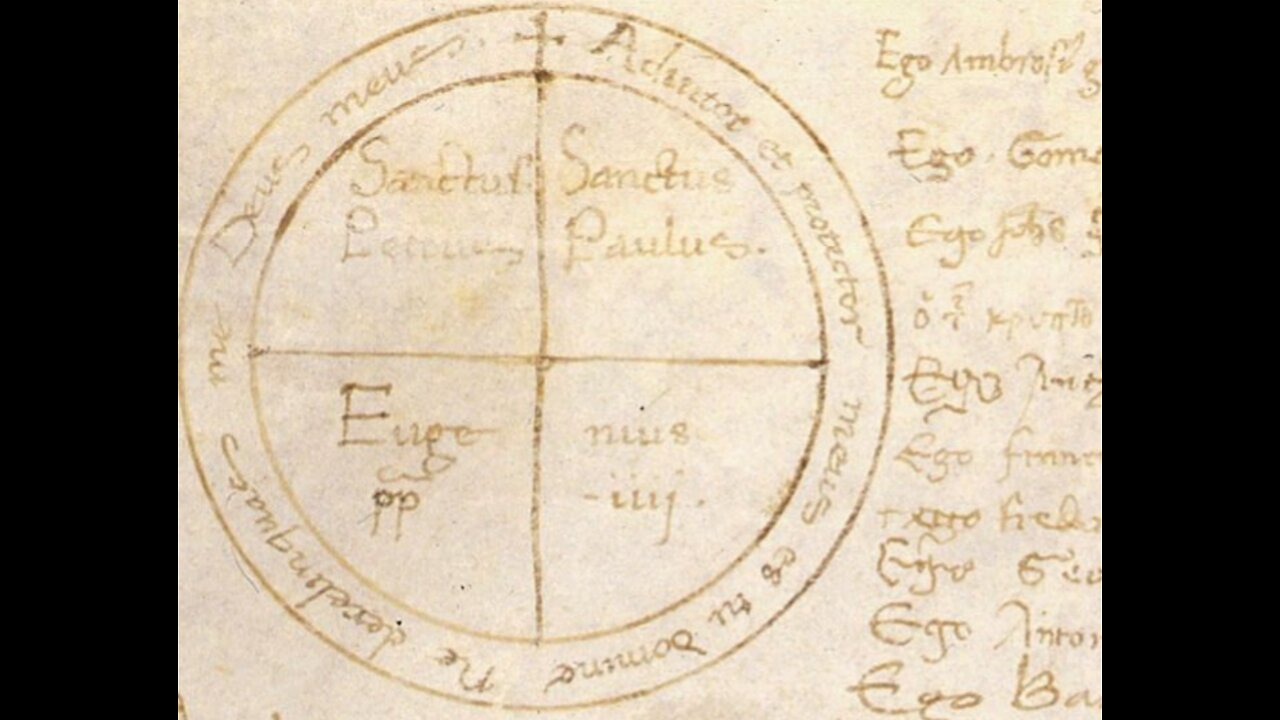 ✝ Adiutor et protector meus es tu domine ne derelinquas me Deus meus.
Sanctus Sanctus
Petrus Paulus.
Euge nius
pp iiij.
Ego Ambrosi
Ego Gome
Ego Johs
Ego
Ego franc
Ego
Ego Anton
Ego Ba